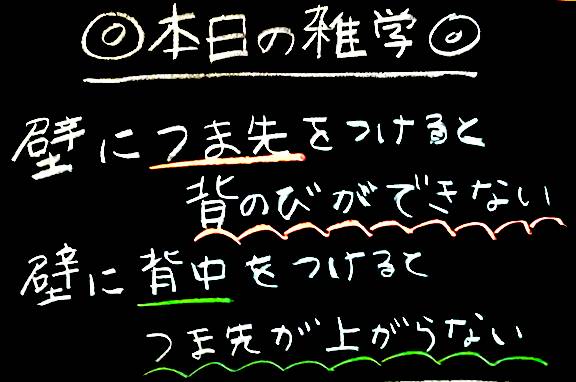 ◎本日の雑学◎
壁につま先をつけると
背のびができない
壁に背中をつけると
つま先が上がらない